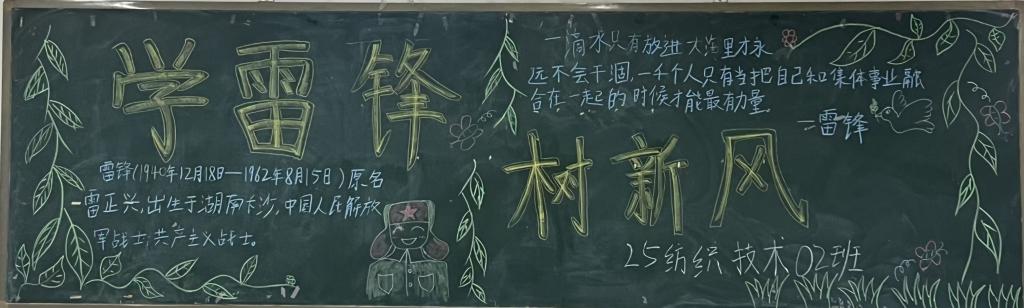 学雷锋
雷锋(1940年12月18日—1962年8月15日)原名
雷正兴,出生于湖南长沙,中国人民解放
军战士,共产主义战士。
一滴水只有放进大海里才永
远不会干涸,一个人只有当把自己和集体事业融
合在一起的时候才能最有力量
—雷锋
树新风
25纺织技术02班